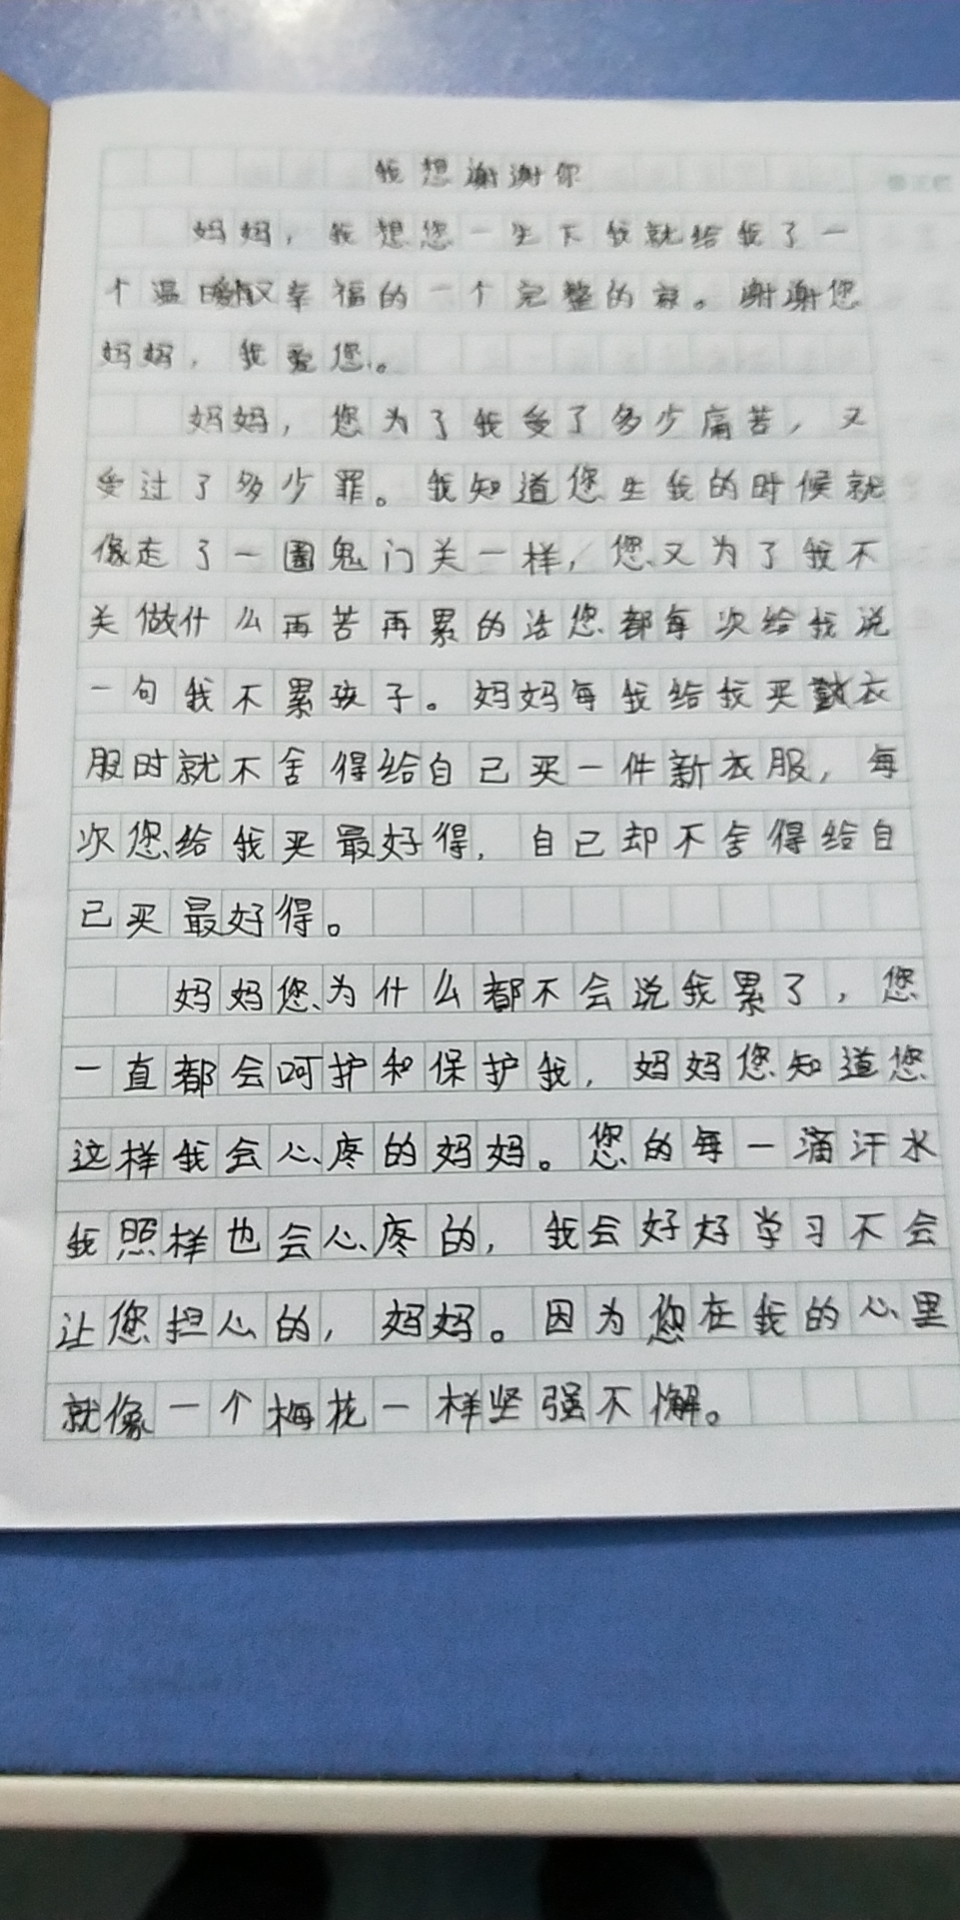 我想谢谢你
妈妈，我想您一生下我就给我了一
个温暖又幸福的一个完整的家。谢谢您
妈妈，我爱您。
妈妈，您为了我受了多少痛苦，又
受过了多少罪。我知道您生我的时候就
像走了一圈鬼门关一样，您又为了我不
关做什么再苦再累的活您都每次给我说
一句我不累孩子。妈妈每我给我买衣
服时就不舍得给自己买一件新衣服，每
次您给我买最好得，自己却不舍得给自
己买最好得。
妈妈您为什么都不会说我累了，您
一直都会呵护和保护我，妈妈您知道您
这样我会心疼的妈妈。您的每一滴汗水
我照样也会心疼的，我会好好学习不会
让您担心的，妈妈。因为您在我的心里
就像一个梅花一样坚强不懈。